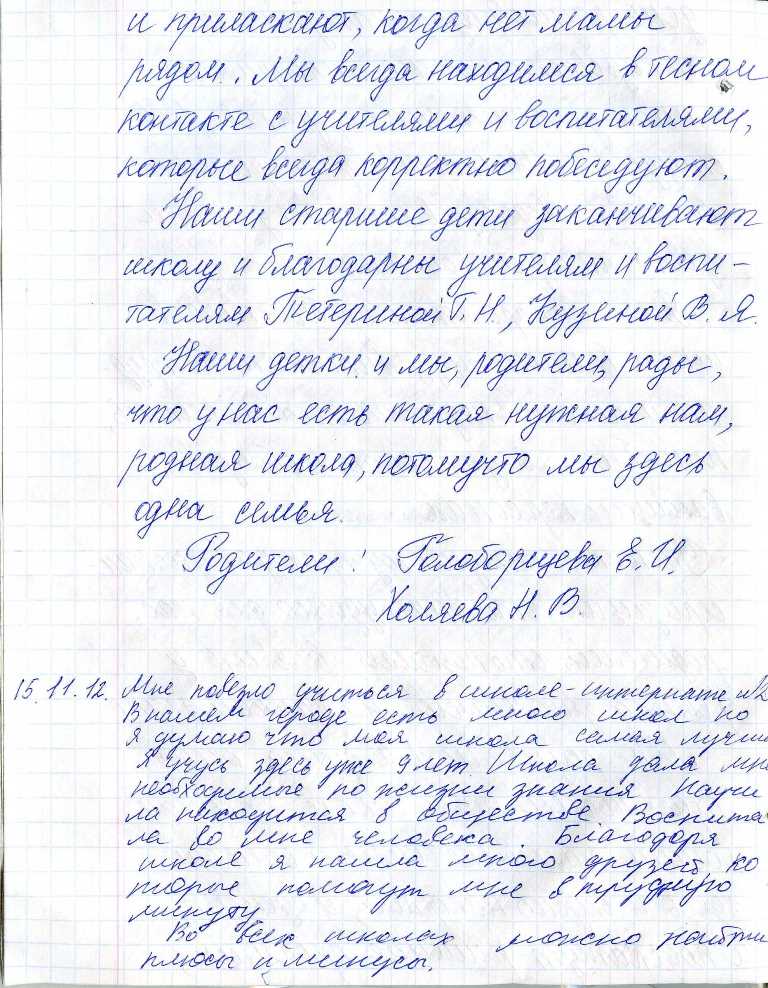 и приласкают, когда нет мамы
рядом. Мы всегда находимся в тесном
контакте с учителями и воспитателями,
которые всегда корректно побеседуют.
Наши старшие дети заканчивают
школу и благодарны учителям и воспи-
тателям Тетериной Г.Н., Кузиной В.Я.
Наши детки и мы, родители, рады,
что у нас есть такая нужная нам,
родная школа, потому что мы здесь
одна семья.
Родители: Голоборщева Е.И.
Холяева Н.В.
15.11.12. Мне повезло учиться в школе-интернате №2
В нашем городе есть много школ но
я думаю что моя школа самая лучша
Я учусь здесь уже 9 лет. Школа дала мне
необходимые по жизни знания Научи
ла находится в обществе. Воспита
ла во мне человека. Благодоря
школе я нашла много друзей, ко
торые помогут мне в трудную
минуту
Во всех школах можно найти
плюсы и минусы.